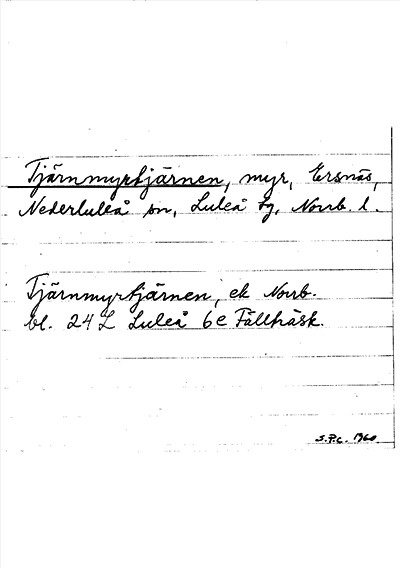 Tjärnmyrtjärnen, myr, Ersnäs,
Nederluleå sn, Luleå tg, Norrb. l.
Tjärnmyrtjärnen, ek Norrb.
bl. 24 L Luleå 6e Fällträsk.
S.P.c. 1960.